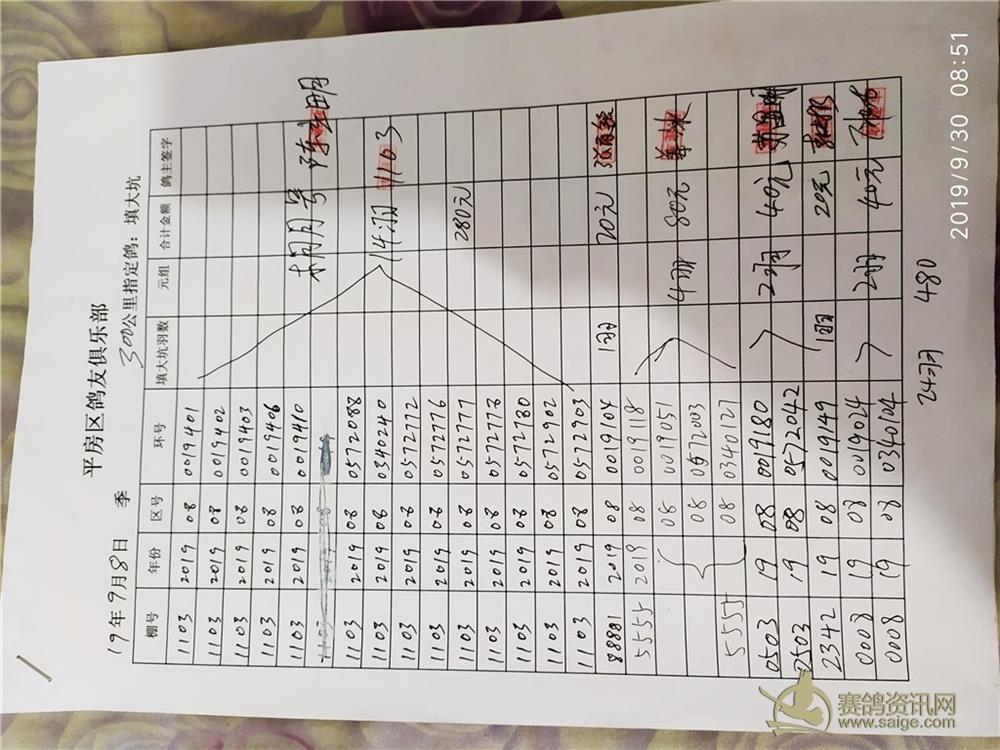 平房区鸽友俱乐部
19年9月8日 季 300公里指定鸽：填大坑
棚号 年份 区号 环号 填大坑羽数 元组 合计金额 鸽主签字
1103 2019 08 0019401
1103 2019 08 0019402
1103 2019 08 0019403
1103 2019 08 0019406
1103 2019 08 0019410 胡月号
1103 2019 08
1103 2019 08 0572088
1103 2019 08 0340240 14羽 1103
1103 2019 08 0572772
1103 2019 08 0572776
1103 2019 08 0572777 280元
1103 2019 08 0572778
1103 2019 08 0572780
1103 2019 08 0572902
1103 2019 08 0572903
88881 2019 08 0019104 1羽 20元
5555 2019 08 0019118
08 0019051 4羽 80元
08 0572003
5555 08 0340127
0503 19 08 0019180 2羽 40元
0503 19 08 0572042
2342 19 08 0019149 1羽 20元
0008 19 08 0019024 2羽 40元
0008 19 08 0340104
24羽 480
2019/9/30 08:51
赛鸽资讯网
www.saige.com